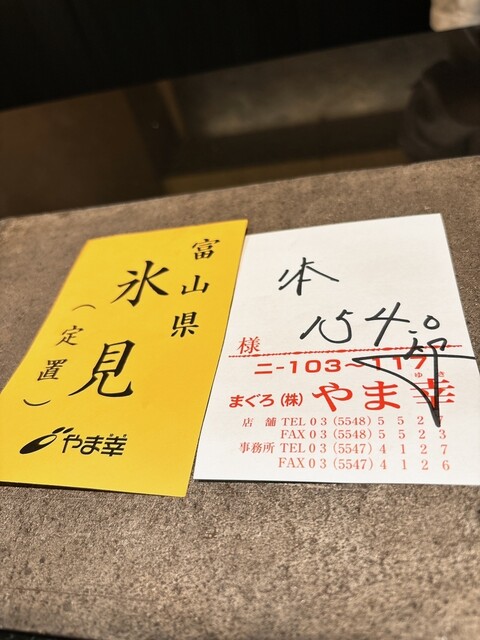 富山県
氷見
（定置）
やま幸
本
154.0
様
ニ-103～117
ゆき
まぐろ（株）やま幸
店舗 TEL 03（5548）5527
FAX 03（5548）5523
事務所 TEL 03（5547）4127
FAX 03（5547）4126